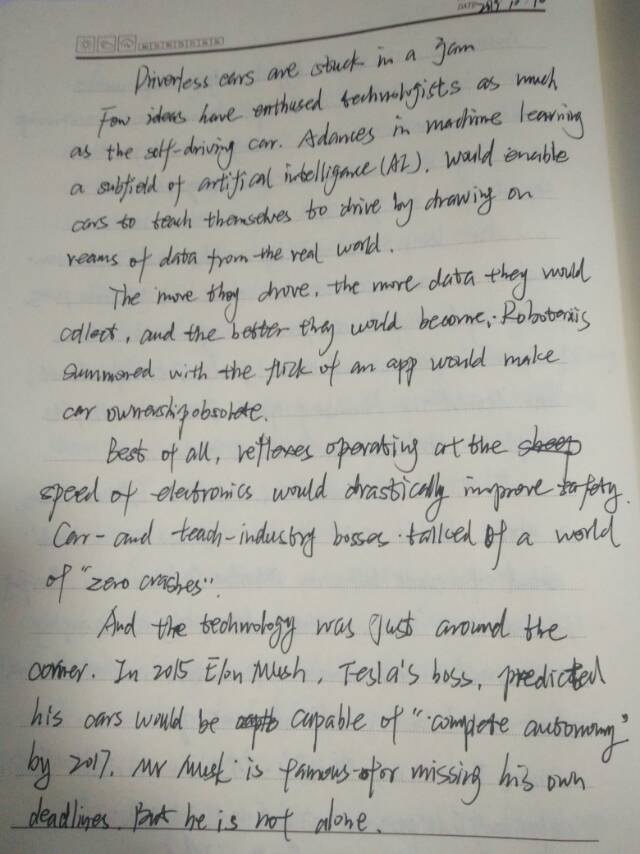 DATE 2019 10 16
Driverless cars are stuck in a jam
Few ideas have enthused technologists as much
as the self-driving car. Adances in machine learning
a subfield of artifical intelligance (AI), would enable
cars to teach themselves to drive by drawing on
reams of data from the real world.
The more they drove, the more data they would
collect, and the better they would become, Robotaxis
summored with the flick of an app would make
car ownership obsolete.
Best of all, reflexes operating at the
speed of electronics would drastically improve safety.
Car-and teach-industry bosses talked of a world
of "zero crashes".
And the technology was just around the
corner. In 2015 Elon Mush, Tesla's boss, predicted
his cars would be capable of "complete autonomy"
by 2017. Mr Musk is famous for missing his own
deadlines. But he is not alone.